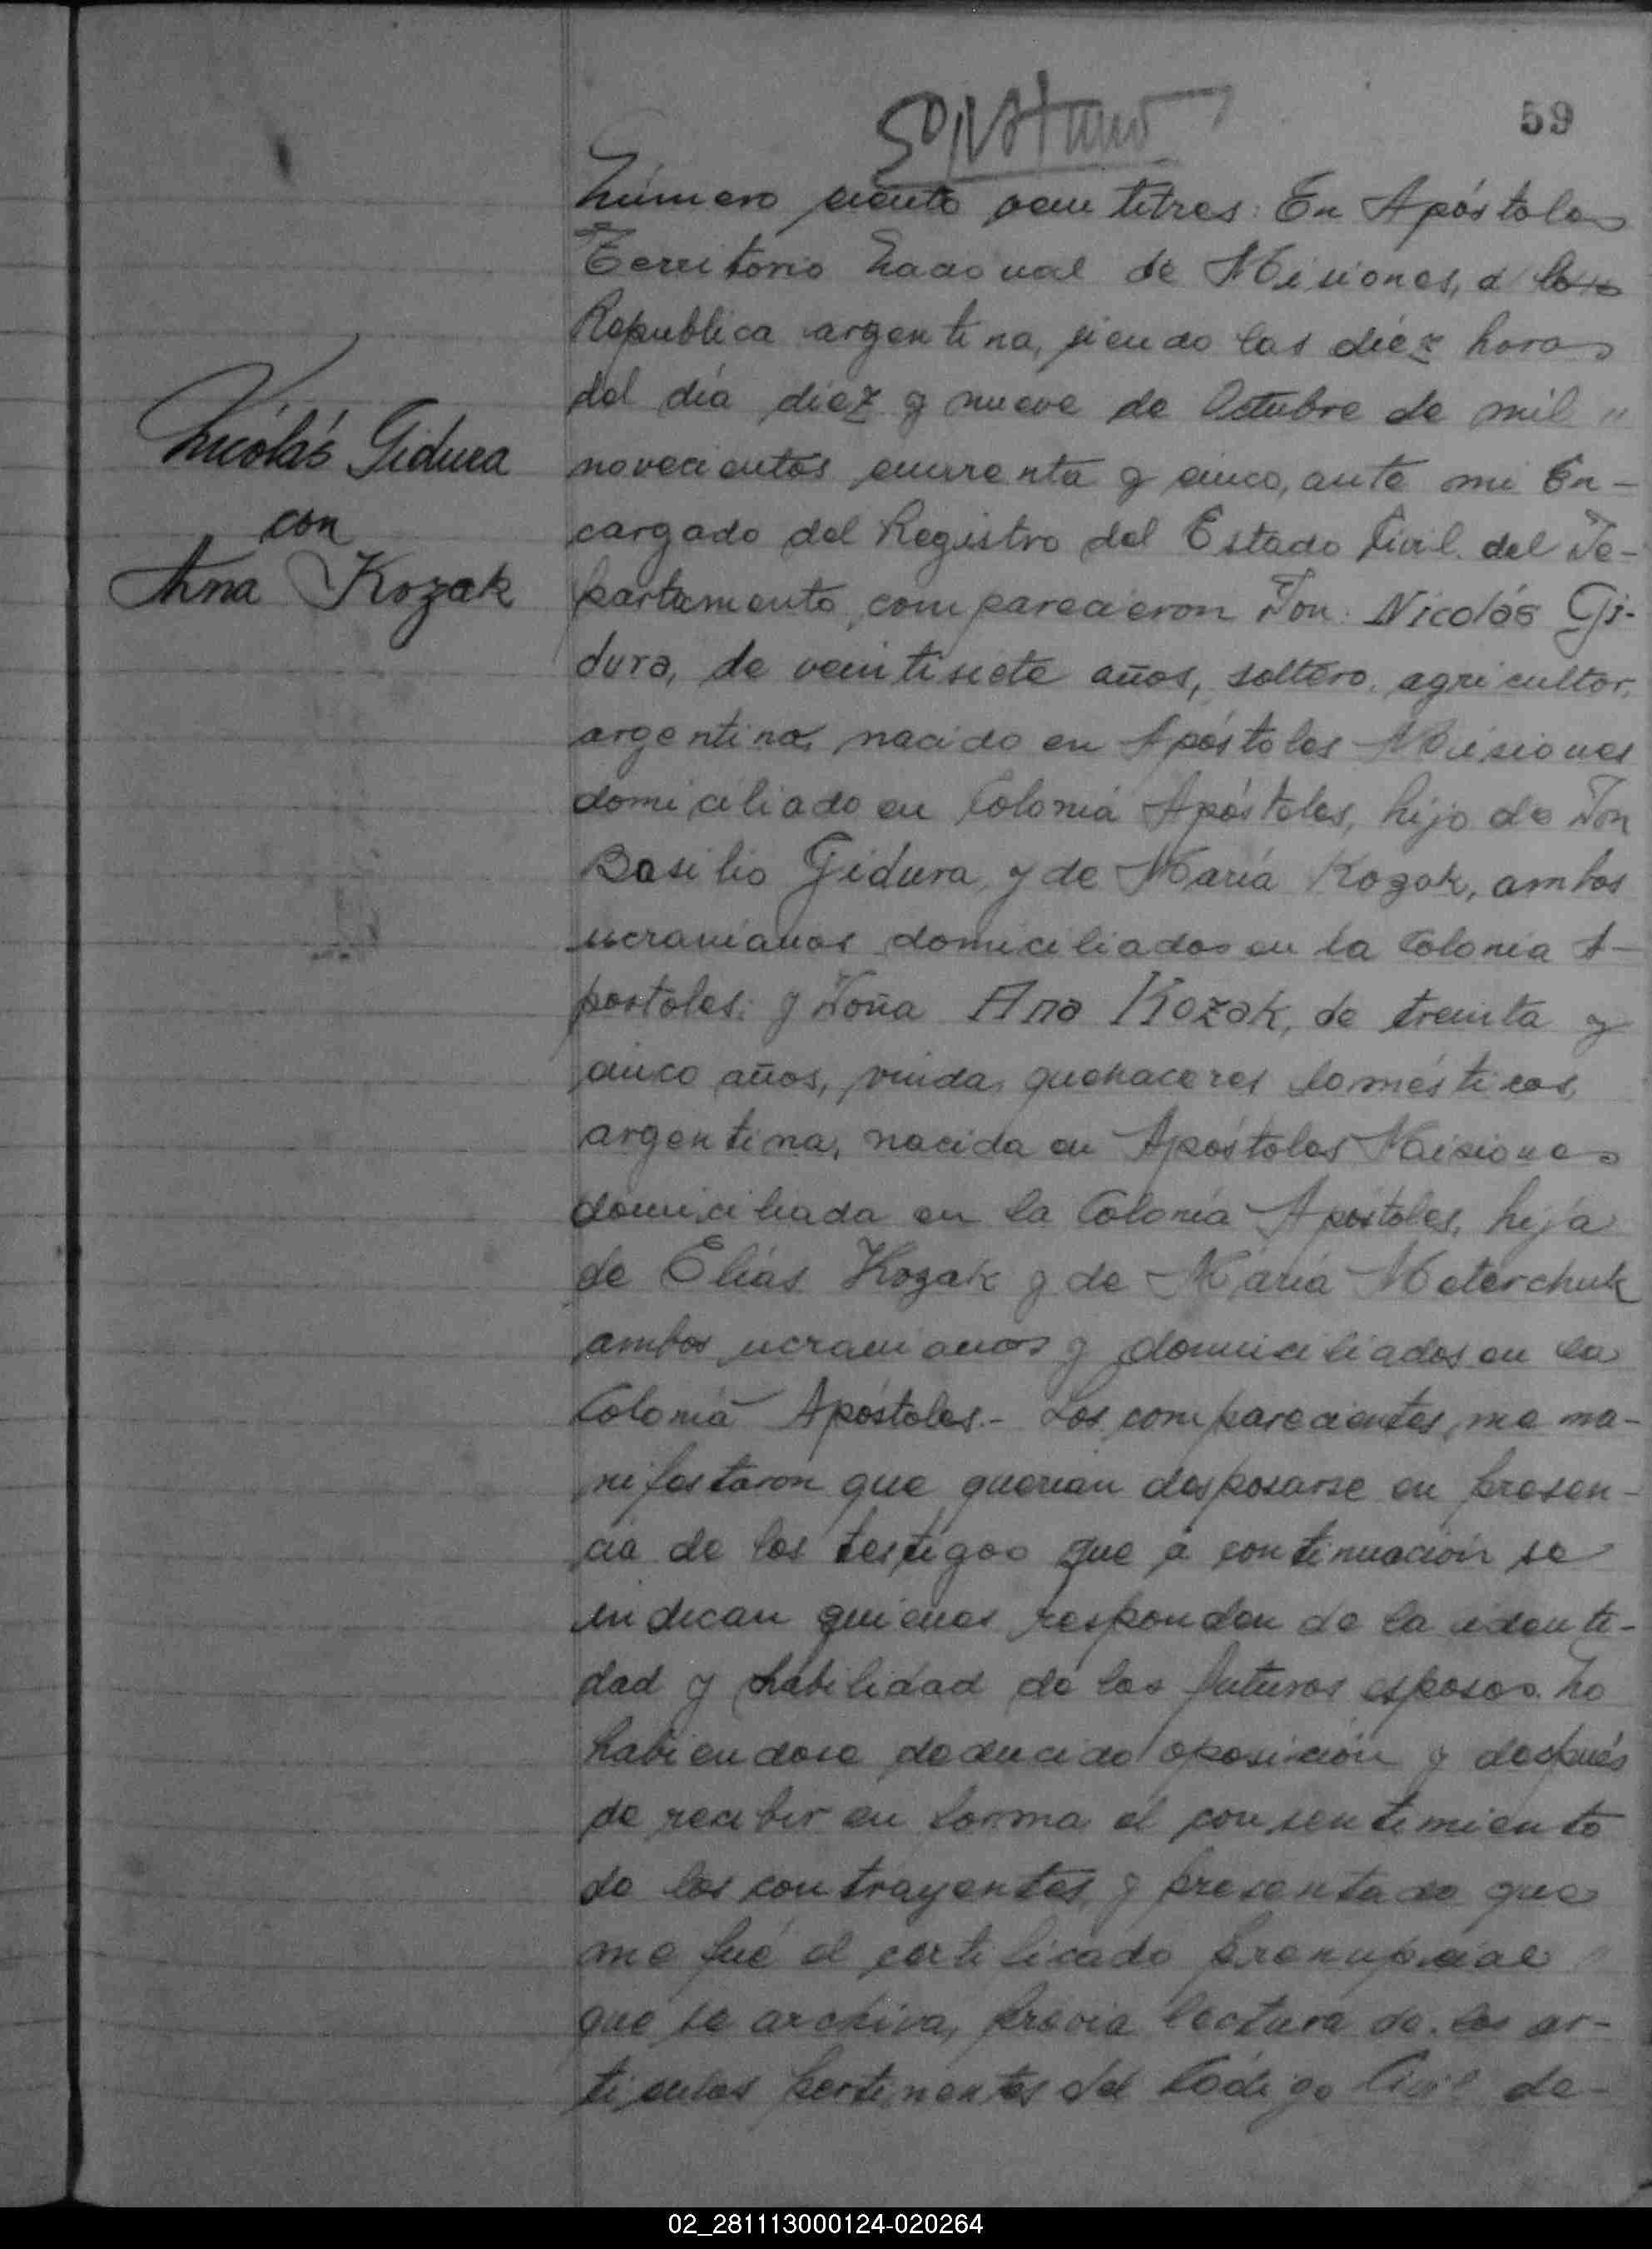 59
Número ciento veintitres: En Apóstoles
Territorio Nacional de Misiones, a los
Republica argentina, siendo las diéz horas
del día diez y nueve de Octubre de mil "
novecientos cuarenta y cinco, ante mi En-
cargado del Registro del Estado Civil del De-
partamento, comparecieron Don: Nicolás Gi-
dura, de veintisiete años, soltero, agricultor,
argentino, nacido en Apóstoles Misiones
domiciliado en Colonia Apóstoles, hijo de Don
Basilio Gidura, y de María Kozak, ambos
ucranianos domiciliados en la Colonia A-
postoles; y Doña Ana Kozak, de treinta y
cinco años, viuda, quehaceres domésticos,
argentina, nacida en Apóstoles Misiones
domiciliada en la Colonia Apóstoles, hija
de Elías Kozak y de María Meterchuk
ambos ucranianos y domiciliados en la
Colonia Apóstoles.- Los comparecientes, me ma-
nifestaron que querian desposarse en presen-
cia de los testigos que a continuación se
indican quienes responden de la identi-
dad y habilidad de los futuros esposos. No
habiendose deducido oposición y después
de recibir en forma el consentimiento
de los contrayentes, y presentado que
me fué el certificado prenupcial "
que se archiva, previa lectura de los ar-
ticulos pertinentes del Código Civil de-
Nicolás Gidura
con
Ana Kozak
02_281113000124-020264